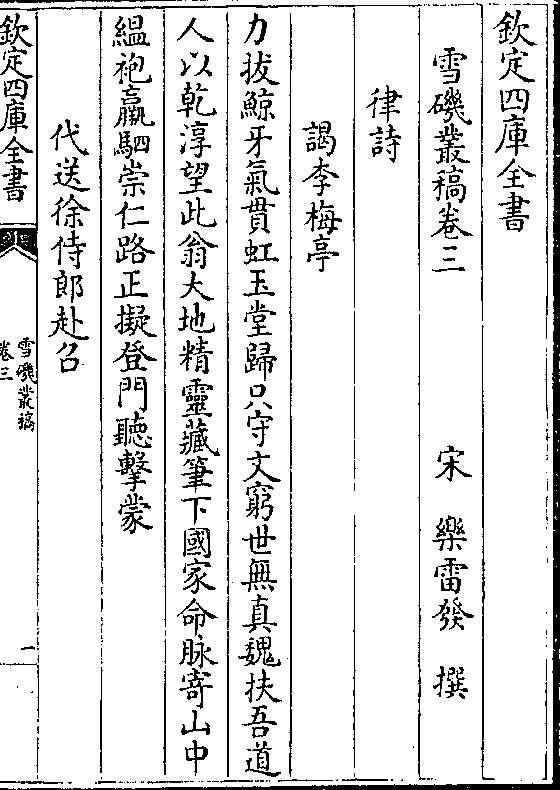 欽定四庫全書
雪磯叢稿卷三
宋 樂雷發 撰
律詩
謁李梅亭
力拔鯨牙氣貫虹玉堂歸只守文窮世無真魏扶吾道
人以乾淳望此翁大地精靈藏筆下國家命脉寄山中
緼袍羸駟崇仁路正擬登門聽擊蒙
代送徐侍郎赴召
欽定四庫全書
雪磯叢稿
卷三
一